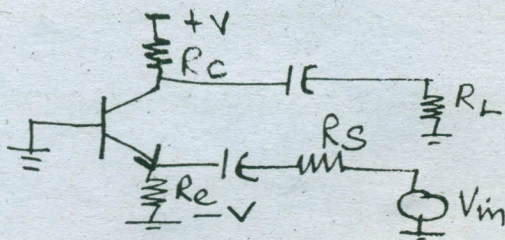 +V
Rc
RL
RS
Re
Vin
-V